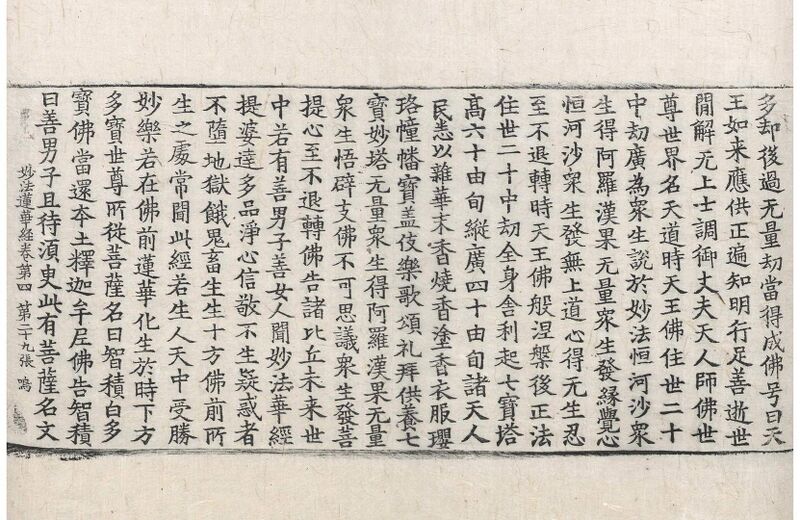 多却後過无量劫當得成佛号曰天
王如来應供正遍知明行足善逝世
閒解无上士調御丈夫天人師佛世
尊世界名天道時天王佛住世二十
中劫廣為衆生說於妙法恒河沙衆
生得阿羅漢果无量衆生發緣覺心
恒河沙衆生發無上道心得无生忍
至不退轉時天王佛般涅槃後正法
住世二十中劫全身舍利起七寶塔
髙六十由旬縱廣四十由旬諸天人
民悉以雜華末香燒香塗香衣服瓔
珞幢幡寶盖伎樂歌頌礼拜供養七
寶妙塔无量衆生得阿羅漢果无量
衆生悟辟支佛不可思議衆生發菩
提心至不退轉佛告諸比丘未来世
中若有善男子善女人聞妙法華經
提婆達多品淨心信敬不生疑惑者
不墮地獄餓鬼畜生生十方佛前所
生之處常聞此經若生人天中受勝
妙樂若在佛前蓮華化生於時下方
多寶世尊所從菩薩名曰智積白多
寶佛當還本土釋迦牟尼佛告智積
曰善男子且待須臾此有菩薩名文
妙法蓮華經卷第四 第二十九張 鳴